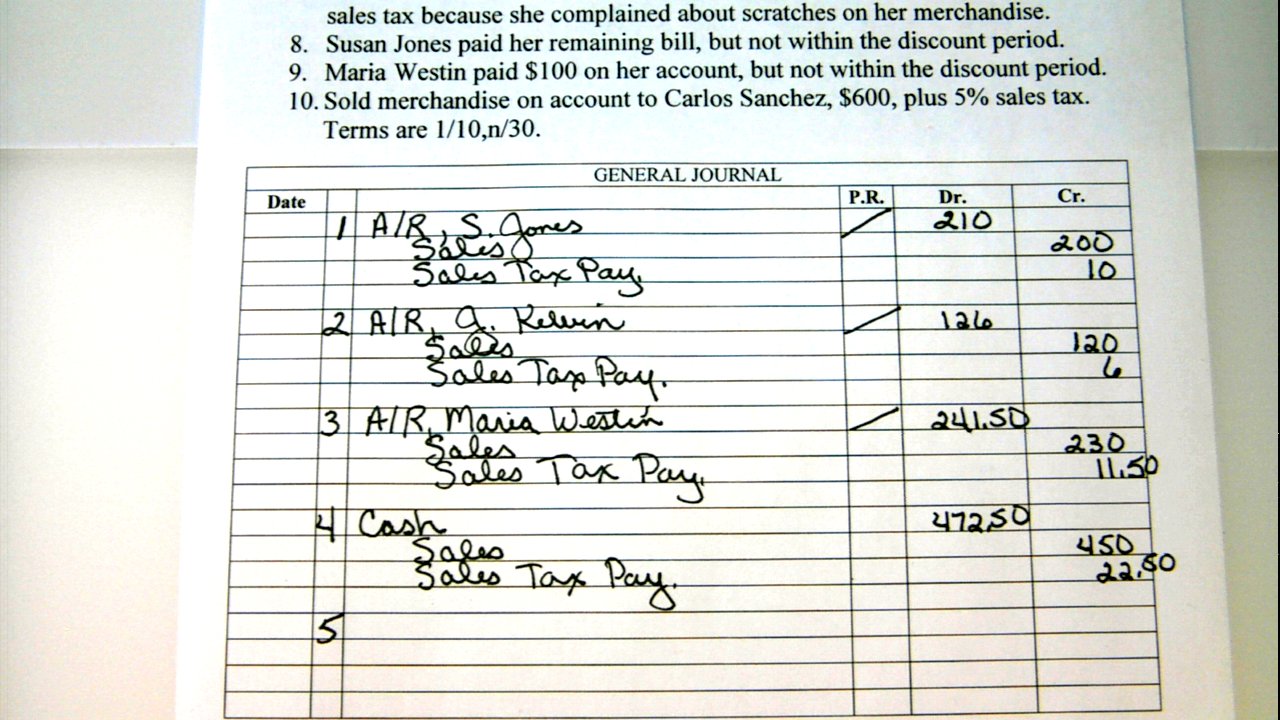 sales tax because she complained about scratches on her merchandise.
8. Susan Jones paid her remaining bill, but not within the discount period.
9. Maria Westin paid $100 on her account, but not within the discount period.
10. Sold merchandise on account to Carlos Sanchez, $600, plus 5% sales tax.
Terms are 1/10,n/30.
GENERAL JOURNAL
Date P.R. Dr. Cr.
1 A/R, S. Jones 210
Sales 200
Sales Tax Pay. 10
2 A/R, J. Kelvin 126
Sales 120
Sales Tax Pay. 6
3 A/R, Maria Westin 241.50
Sales 230
Sales Tax Pay. 11.50
4 Cash 472.50
Sales 450
Sales Tax Pay. 22.50
5